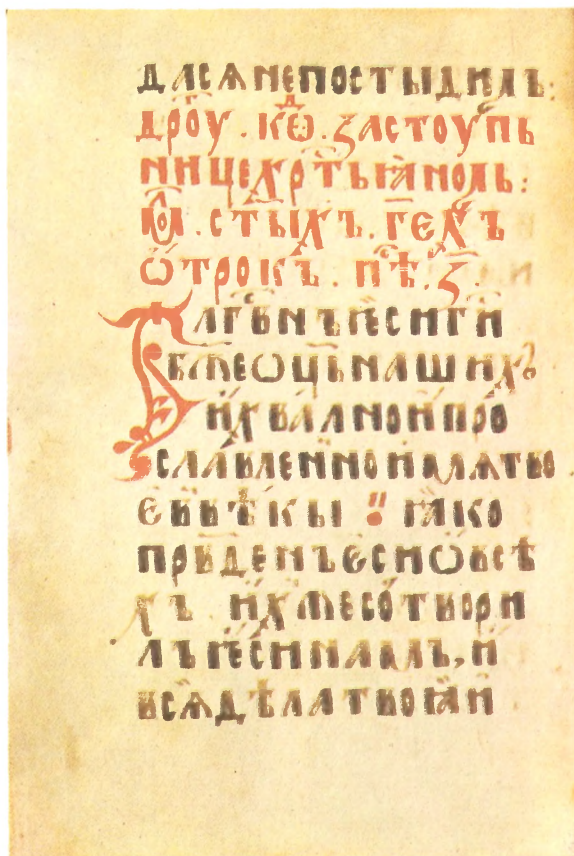 да сѧ не постыдимъ:
дроу . кѡ҃ⷣ . застоупь
нице хр҃тьꙗномь:
. ст҃ыхъ . г҃ ех҃ъ
ѡтрокъ . пѣ҃ . з҃ .
Блг҃внъ ѥси ги҃
б҃же ѡц҃ь нашихъ
и хвално и про
славлено имѧ тво
е въ вѣкы : ꙗко
праведенъ еси ѡ всѣ
хъ ихже сотвори
лъ ѥси намъ, и
всѧ дѣла твоꙗ и